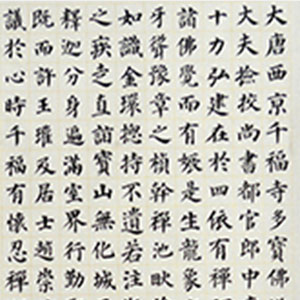 大唐西京千福寺多寶佛
大夫撿挍尚書都官郎中
十力弘建在於四依有禪
諸佛覺而有娠是生龍象
牙聳豫章之楨幹禪池畎
如識金環揔持不遺若注
之疾走直詣寶山無化城
釋迦分身遍滿空界行勤
既而許王瓘及居士趙崇
議於心時千福有懷忍禪